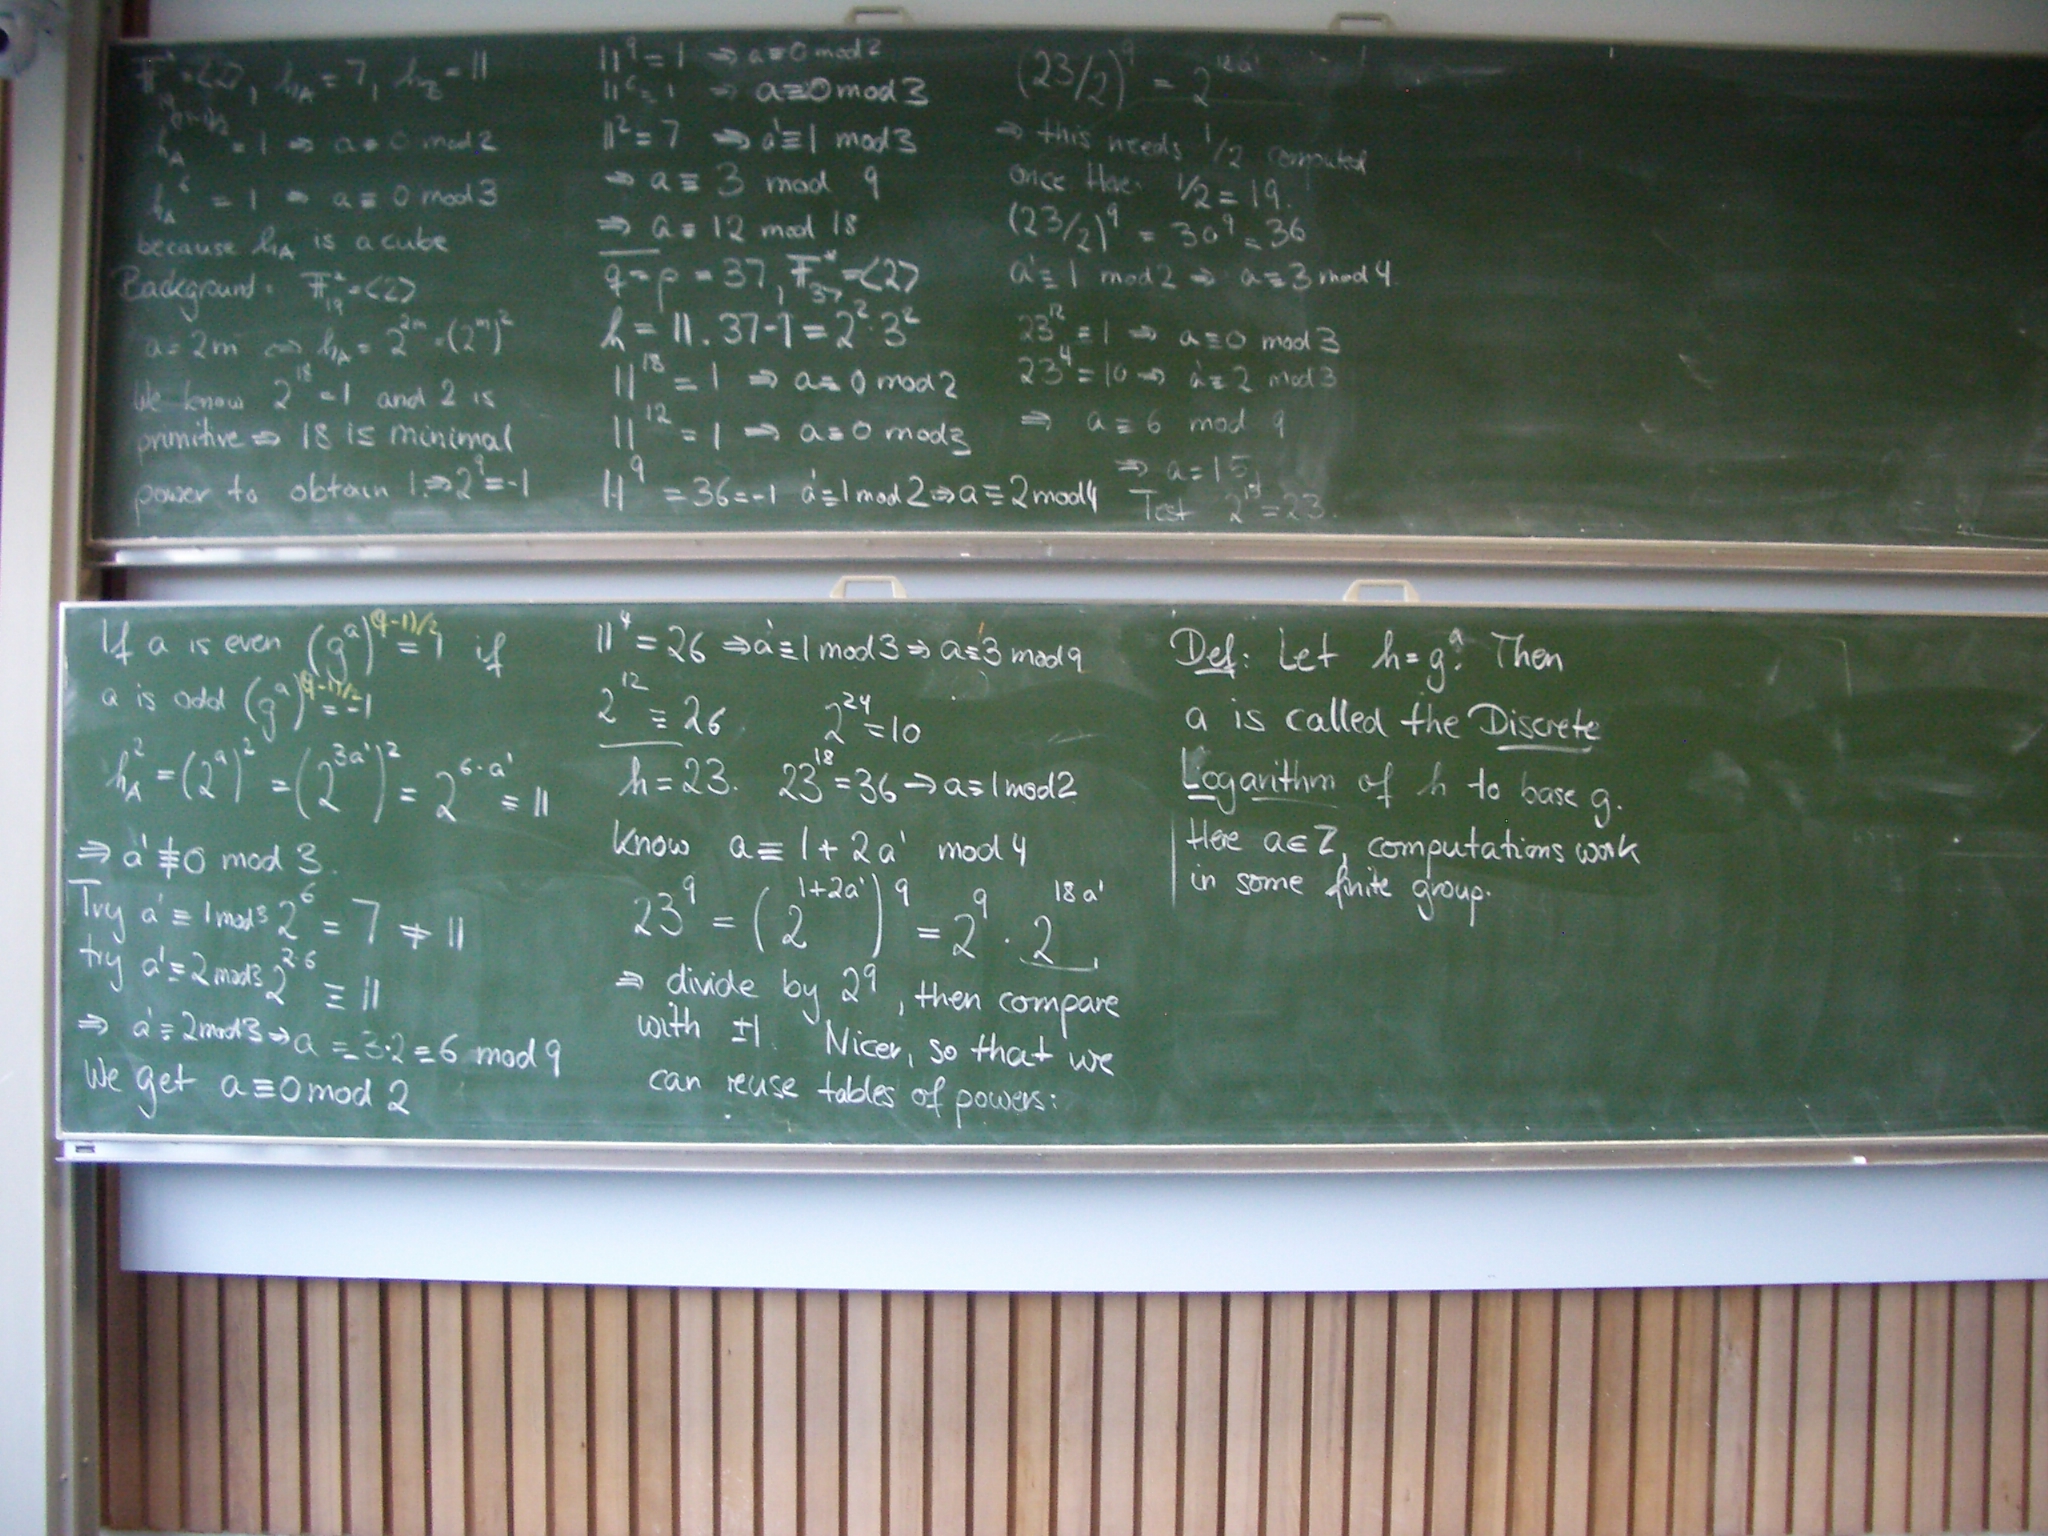 F*₁₉ = <2>, h_A = 7, h_B = 11
h_A^{(19-1)/2} = 1 ⇒ a ≡ 0 mod 2
h_A^6 = 1 ⇒ a ≡ 0 mod 3
because h_A is a cube
Background: F*₁₉ = <2>
a = 2m ⇔ h_A = 2^{2m} = (2^m)^2
We know 2^{18} = 1 and 2 is
primitive ⇒ 18 is minimal
power to obtain 1. ⇒ 2^9 = -1
11^9 = 1 ⇒ a ≡ 0 mod 2
11^6 = 1 ⇒ a ≡ 0 mod 3
11^2 = 7 ⇒ a' ≡ 1 mod 3
⇒ a ≡ 3 mod 9
⇒ a ≡ 12 mod 18
q = p = 37, F*₃₇ = <2>
h = 11. 37-1 = 2^2·3^2
11^{18} = 1 ⇒ a ≡ 0 mod 2
11^{12} = 1 ⇒ a ≡ 0 mod 3
11^9 = 36 = -1 a' ≡ 1 mod 2 ⇒ a ≡ 2 mod 4
(23/2)^9 = 2^{18a'}
⇒ this needs 1/2 computed
once Here 1/2 = 19.
(23/2)^9 = 30^9 = 36
a' ≡ 1 mod 2 ⇒ a ≡ 3 mod 4.
23^{12} = 1 ⇒ a ≡ 0 mod 3
23^4 = 10 ⇒ a' ≡ 2 mod 3
⇒ a ≡ 6 mod 9
⇒ a = 15.
Test 2^{15} = 23.
If a is even (g^a)^{(q-1)/2} = 1 if
a is odd (g^a)^{(q-1)/2} = -1
h_A^2 = (2^a)^2 = (2^{3a'})^2 = 2^{6·a'} = 11
⇒ a' ≢ 0 mod 3.
Try a' ≡ 1 mod 3 2^6 = 7 ≠ 11
try a' ≡ 2 mod 3 2^{2·6} ≡ 11
⇒ a' ≡ 2 mod 3 ⇒ a = 3·2 ≡ 6 mod 9
We get a ≡ 0 mod 2
11^4 = 26 ⇒ a' ≡ 1 mod 3 ⇒ a ≡ 3 mod 9
2^{12} ≡ 26 2^{24} = 10
h = 23. 23^{18} = 36 → a ≡ 1 mod 2
Know a ≡ 1 + 2a' mod 4
23^9 = (2^{1+2a'})^9 = 2^9 · 2^{18a'}
⇒ divide by 2^9, then compare
with ±1. Nicer, so that we
can reuse tables of powers:
Def: Let h = g^a. Then
a is called the Discrete
Logarithm of h to base g.
Here a ∈ Z, computations work
in some finite group.